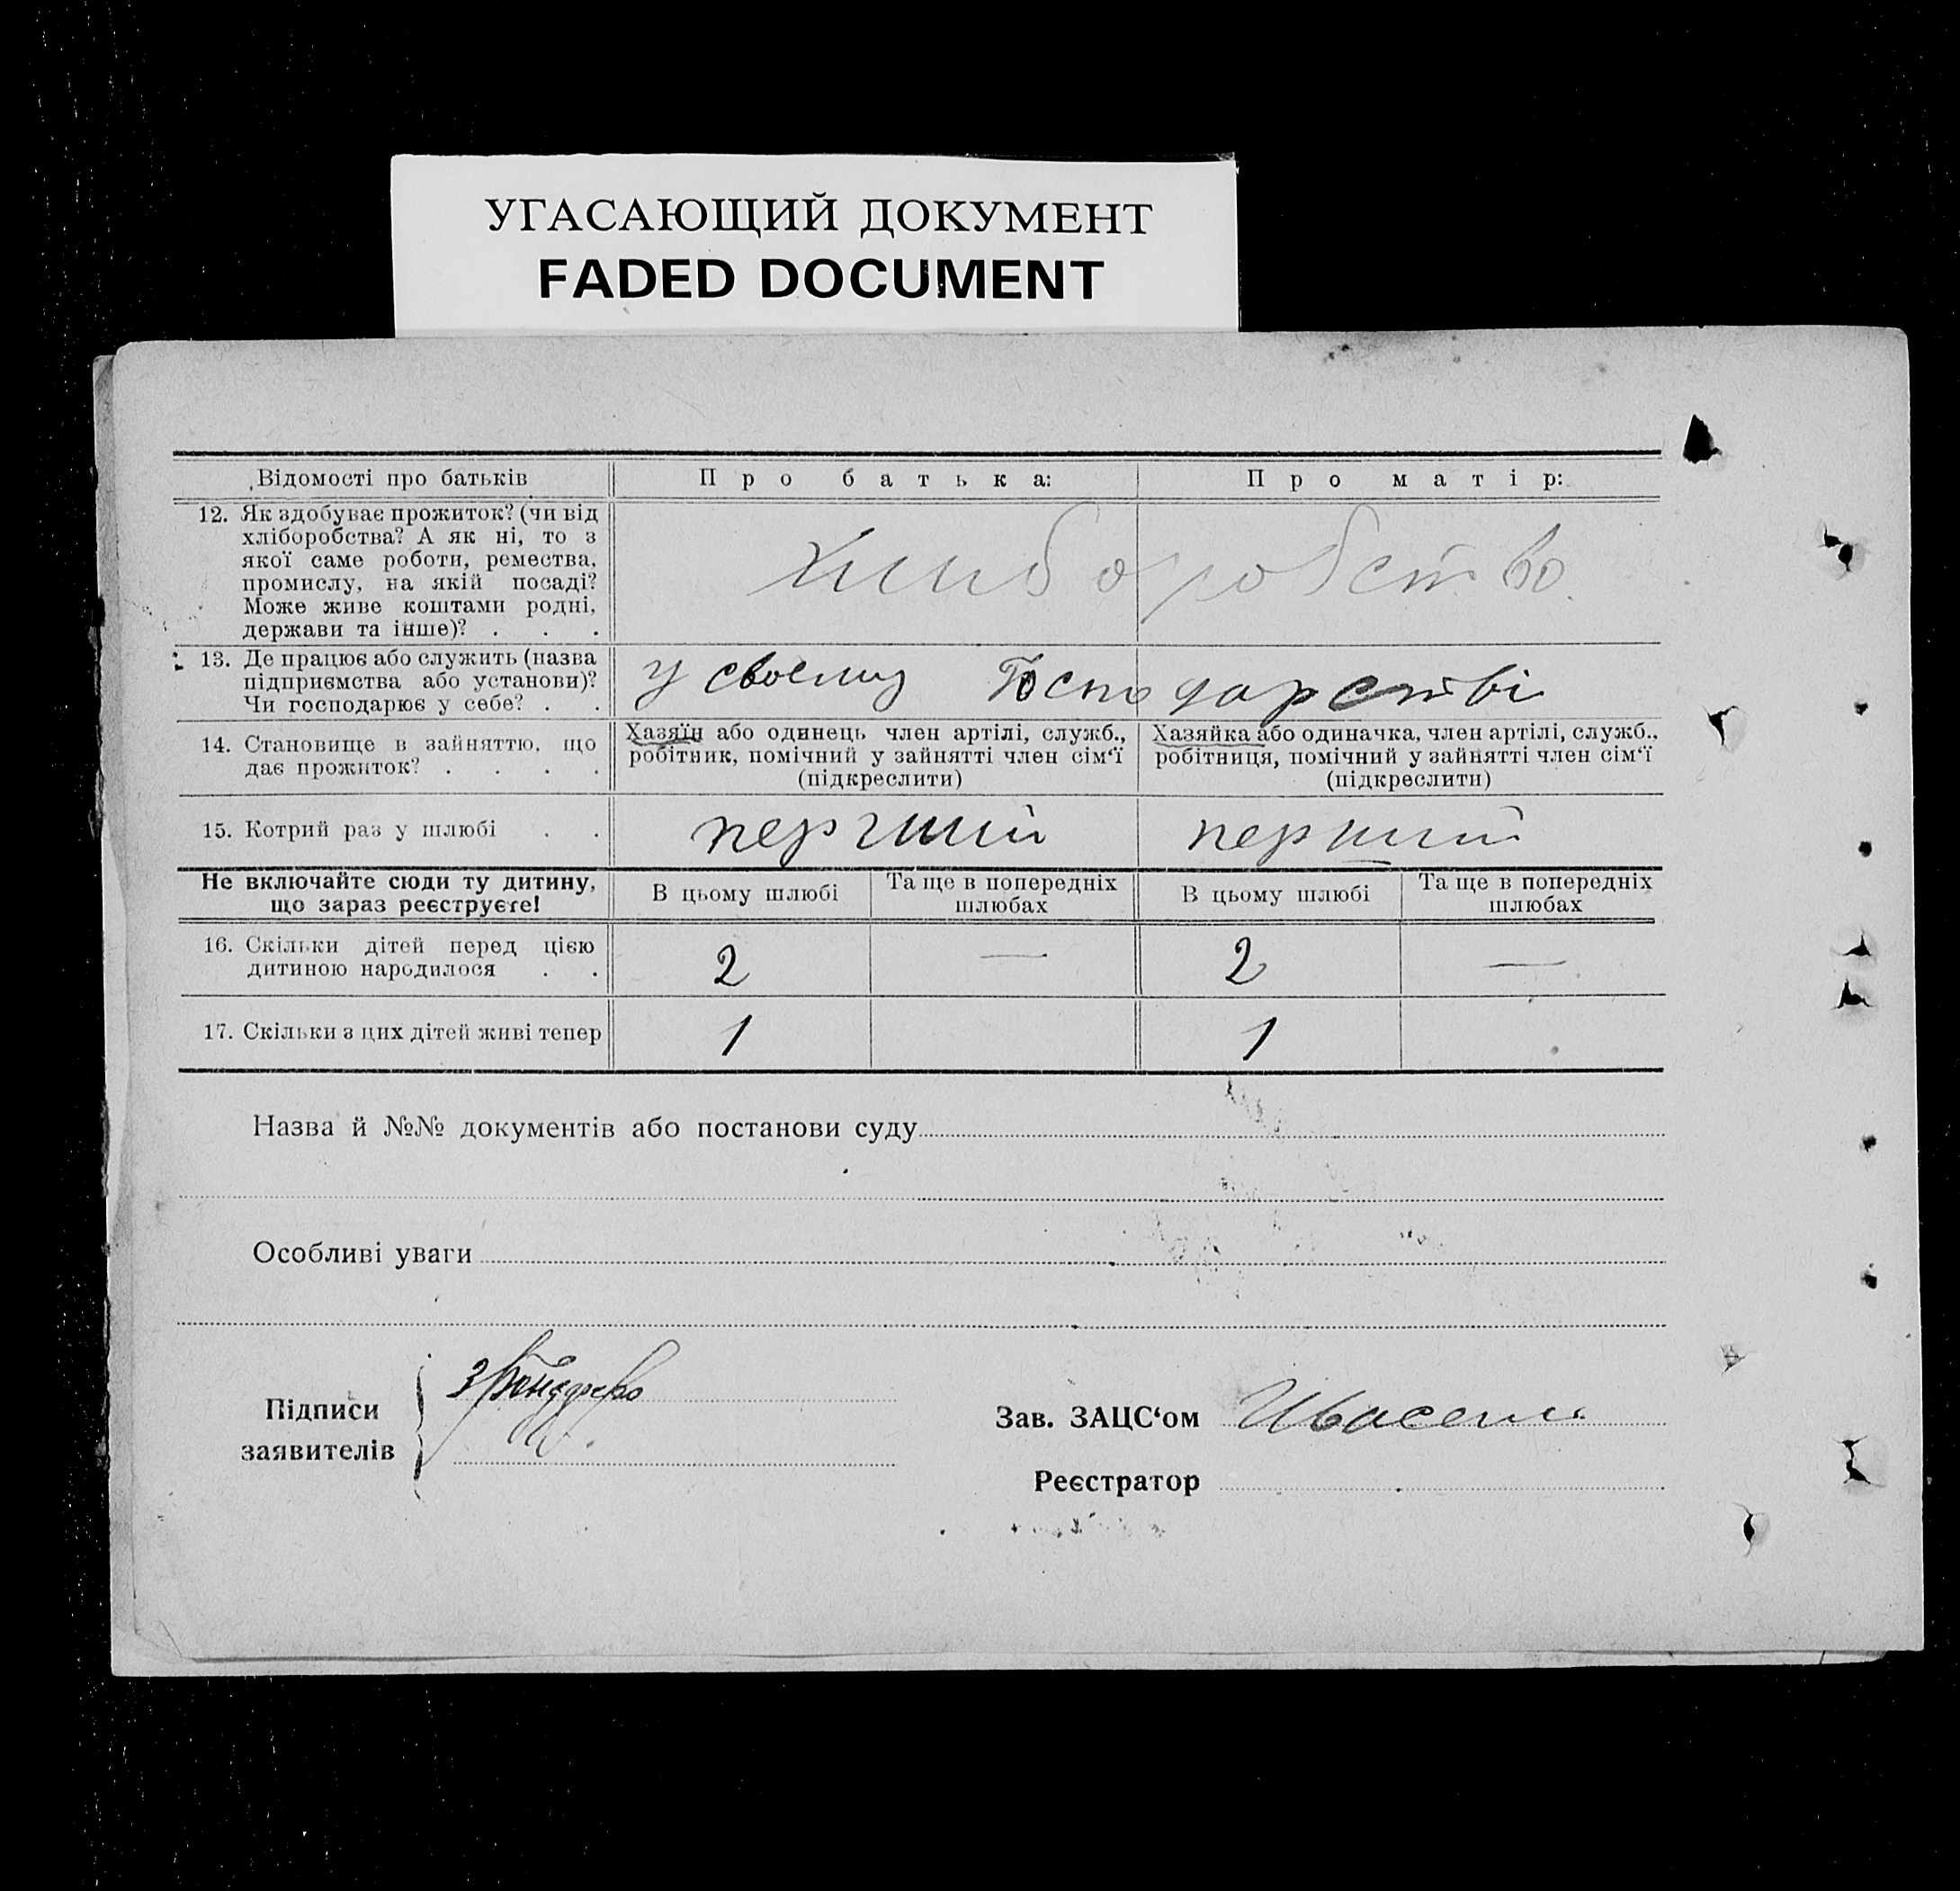 УГАСАЮЩИЙ ДОКУМЕНТ
FADED DOCUMENT
Відомості про батьків
Про батька:
Про матір:
12. Як здобуває прожиток? (чи від
хліборобства? А як ні, то з
якої саме роботи, ремества,
промислу, на якій посаді?
Може живе коштами родні,
держави та інше)? . . .
хлиборобство
13. Де працює або служить (назва
підприємства або установи)?
Чи господарює у себе? . .
у своєму Господарстві
14. Становище в зайняттю, що
дає прожиток? . . . .
Хазяїн або одинець член артілі, служб.,
робітник, помічний у зайнятті член сім‘ї
(підкреслити)
Хазяйка або одиначка, член артілі, служб.,
робітниця, помічний у зайнятті член сім‘ї
(підкреслити)
15. Котрий раз у шлюбі . .
перший
перший
Не включайте сюди ту дитину,
що зараз реєструєте!
В цьому шлюбі
Та ще в попередніх
шлюбах
В цьому шлюбі
Та ще в попередніх
шлюбах
16. Скільки дітей перед цією
дитиною народилося . .
2
—
2
—
17. Скільки з цих дітей живі тепер
1
1
Назва й №№ документів або постанови суду
Особливі уваги
Підписи
заявителів
Зав. ЗАЦС‘ом
Реєстратор